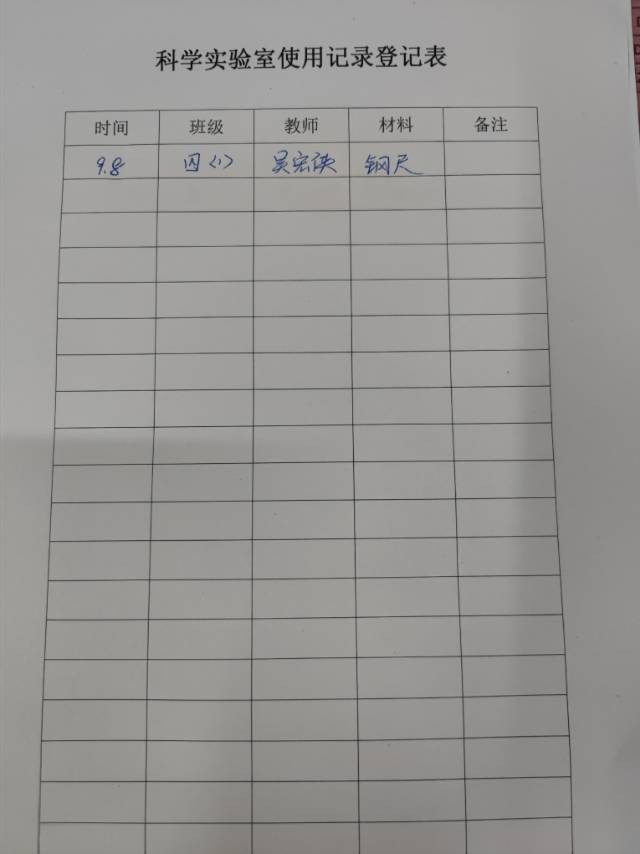 科学实验室使用记录登记表
时间 班级 教师 材料 备注
9.8 四〈1〉 吴宏 钢尺